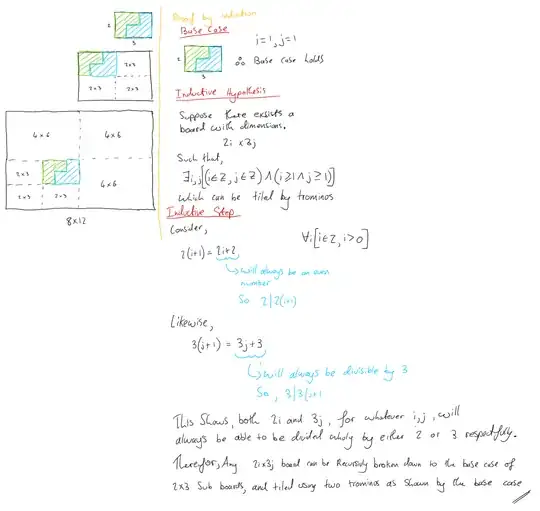 2
3
2x3
2x3
2x3
4x6
4x6
2x3
2x3
2x3
4x6
8x12
Proof by induction
Base Case
i=1, j=1
2
3
∴ Base case holds
Inductive Hypothesis
Suppose there exists a
board with dimensions.
2i x 3j
Such that,
∃i,j[(i∈Z, j∈Z)∧(i≥1∧j≥1)]
which can be tiled by trominos
Inductive Step
Consider,
∀i[i∈Z, i>0]
2(i+1) = 2i+2
will always be an even
number
So 2|2(i+1)
Likewise,
3(j+1) = 3j+3
will always be divisible by 3
So, 3|3(j+1
This shows, both 2i and 3j, for whatever i,j, will
always be able to be divided wholly by either 2 or 3 respectfully.
Therefor, Any 2ix3j board can be Recursivly broken down to the base case of
2x3 Sub boards, and tiled using two trominos as shown by the base case